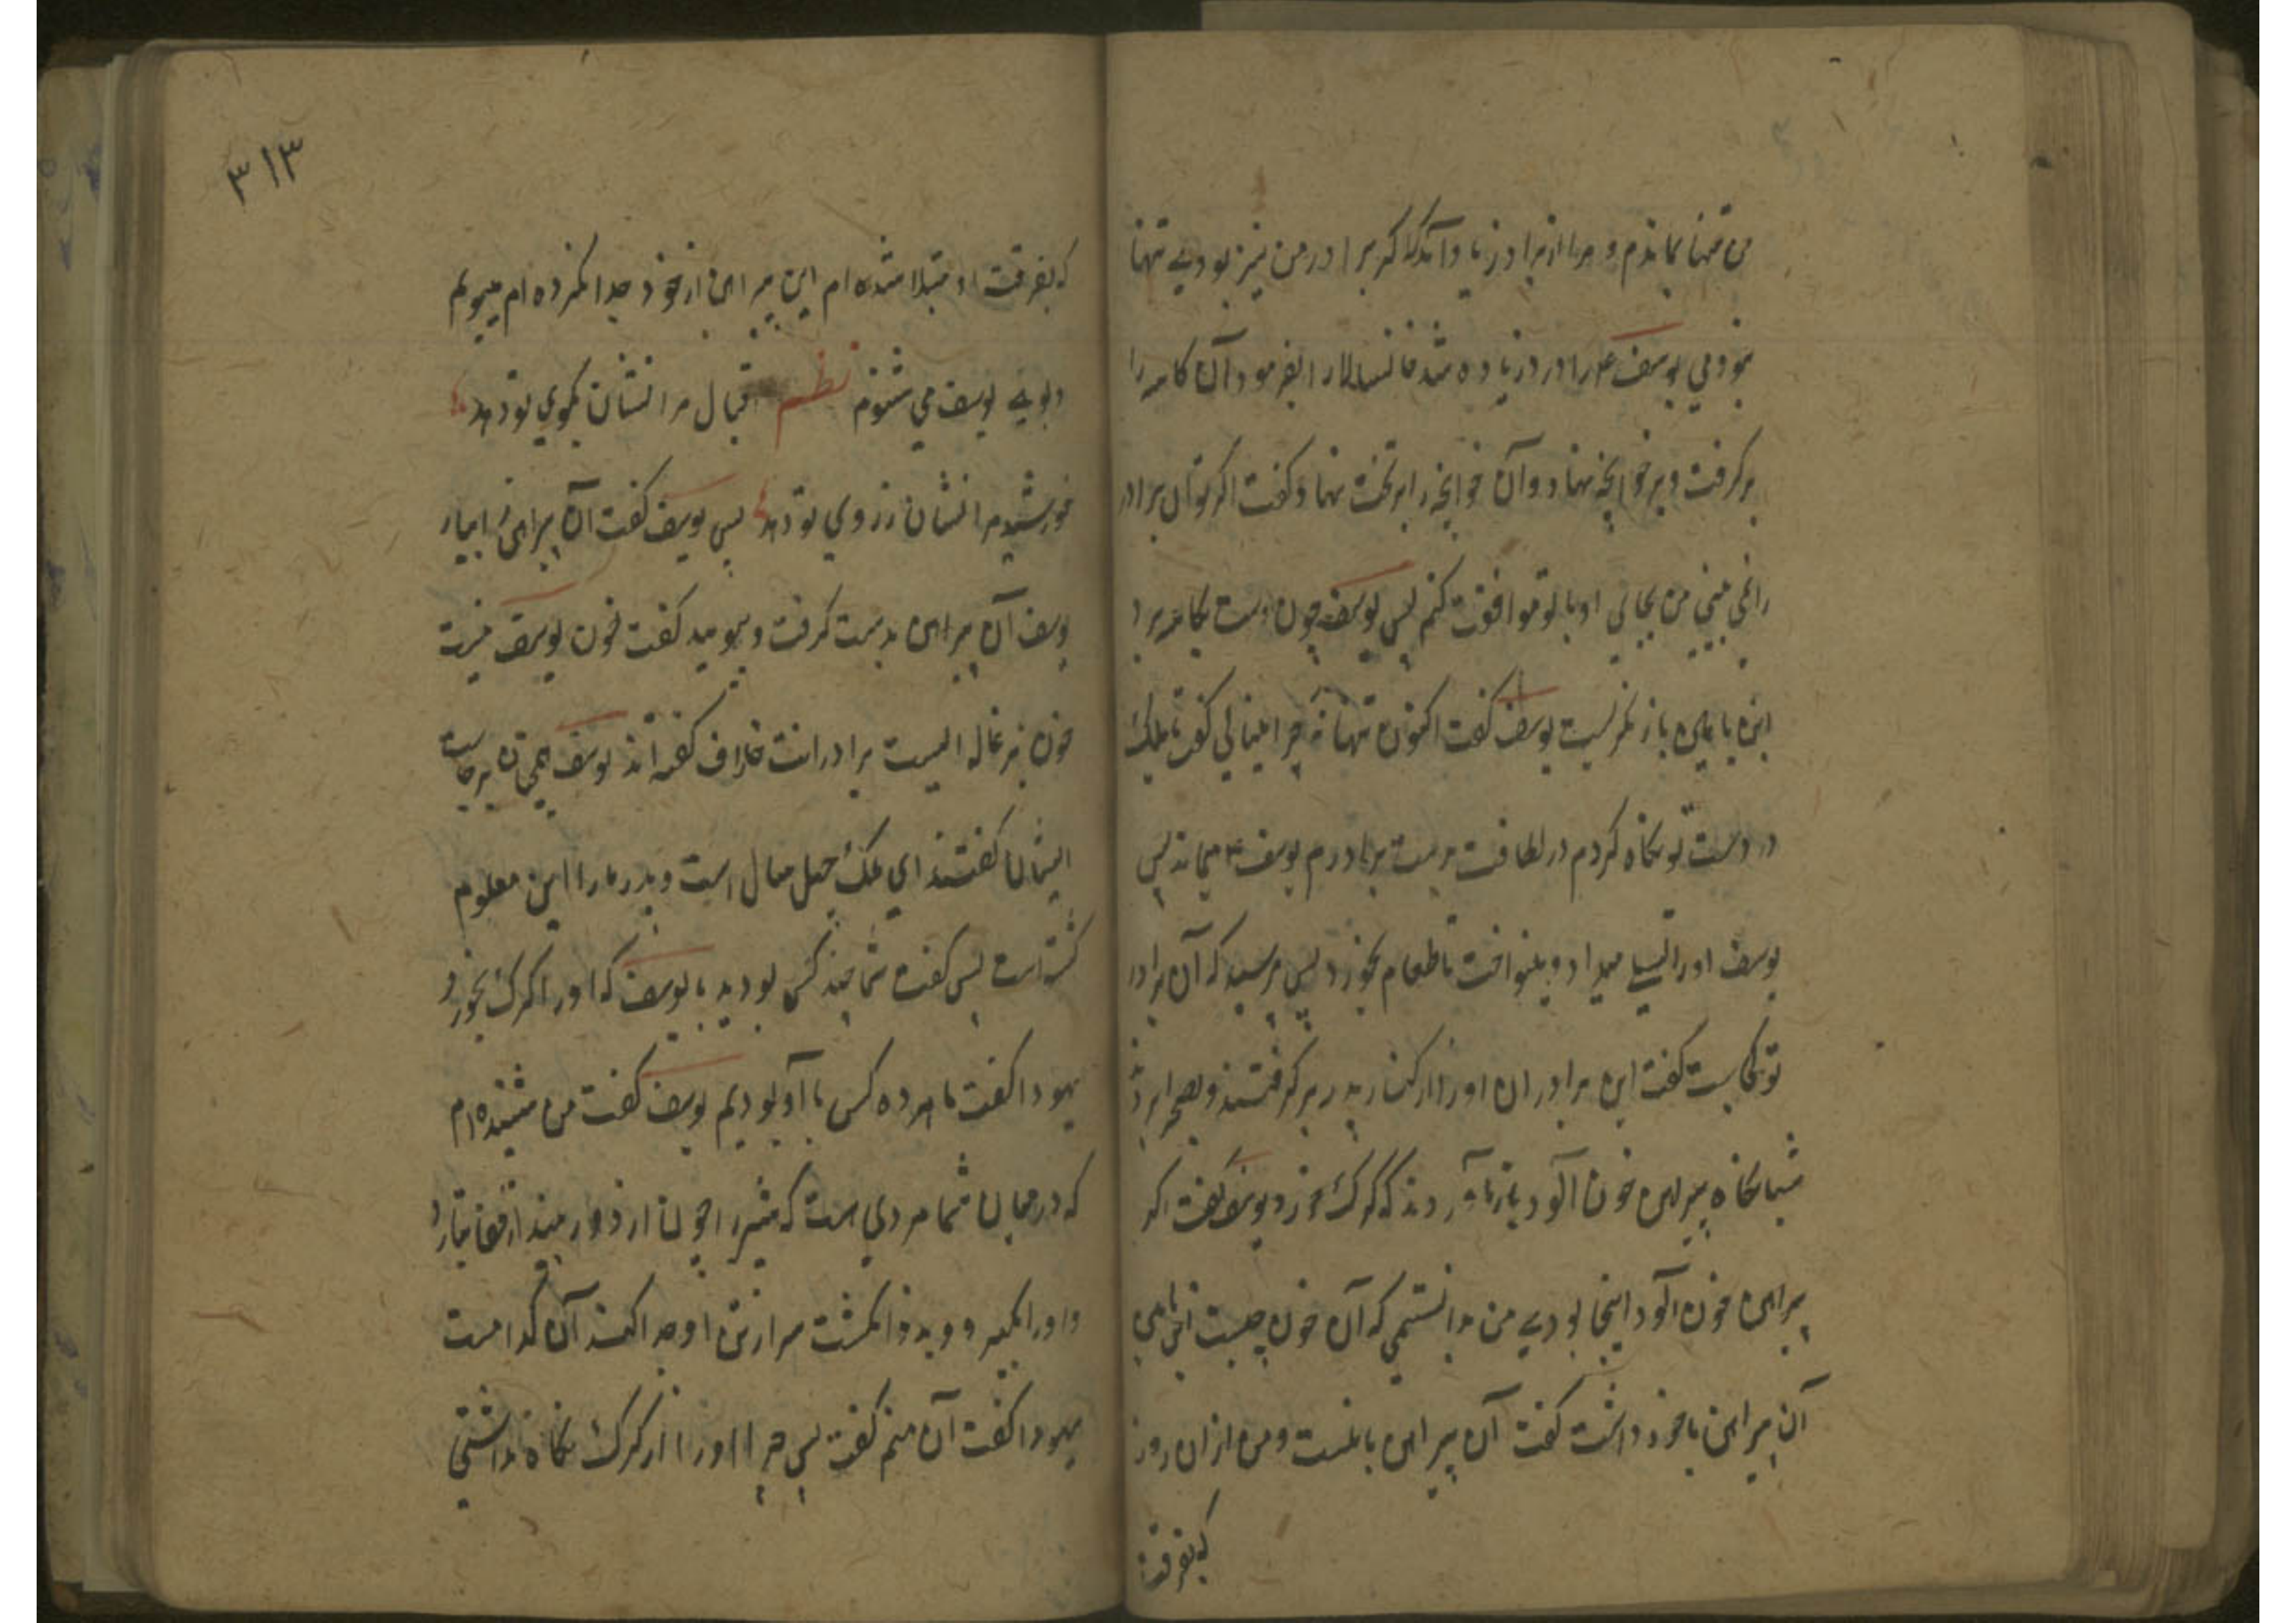 من تنها بماندم و مرا از برادر یاد آمد که اگر برادر من نیز بودی تنها
نبودمی یوسف ع را درد زیاده شد خانسالار را بفرمود آن کاسه را
برگرفت و بر خوانچه نهاد و آن خوانچه را بر تخت نهاد و گفت اگر تو آن برادر
را نمی بینی من بجای او با تو موافقت کنم پس یوسف چون دست بکاسه برد
ابن یامین باز نگریست یوسف گفت اکنون تنها نه چرا مینالی گفت تا ملک
در دست تو نگاه کردم در لطافت بدست برادرم یوسف ع میماند پس
یوسف او را تسلی میداد و مینواخت تا طعام بخورد پس پرسید که آن برادر
تو کجاست گفت این برادران او را از کنار پدر برگرفتند و بصحرا بردند
شبانگاه پیراهن خون آلود باز آوردند که گرگ خورد یوسف گفت اگر
پیراهن خون آلود اینجا بودی من بدانستمی که آن خون چیست ابن یامین
آن پیراهن با خود داشت گفت آن پیراهن با منست و من از آن روز
که بفرقت
۳۱۳
که بفرقت او مبتلا شده ام این پیراهن از خود جدا نکرده ام میبویم
و بوی یوسف می شنوم نظم اقبال مرا نشان بکوی تو دهد
خورشید مرا نشان ز روی تو دهد پس یوسف گفت آن پیراهن را بیار
یوسف آن پیراهن بدست گرفت و ببویید گفت خون یوسف نیست
خون بزغاله ایست برادرانت خلاف گفته اند یوسف همچنان برجاست
ایشان گفتند ای ملک چهل سال است و پدر ما را این معلوم
گشته است پس گفت شما چند کس بودید با یوسف که او را گرگ بخورد
یهودا گفت ما هر ده کس با او بودیم یوسف گفت من شنیده ام
که در میان شما مردی است که شیر را چون از دور بیند از قفا بتازد
و او را بگیرد و بدو انگشت سر از تن او جدا کند آن کدامست
یهودا گفت آن منم گفت پس چرا او را از گرگ نگاه نداشتی